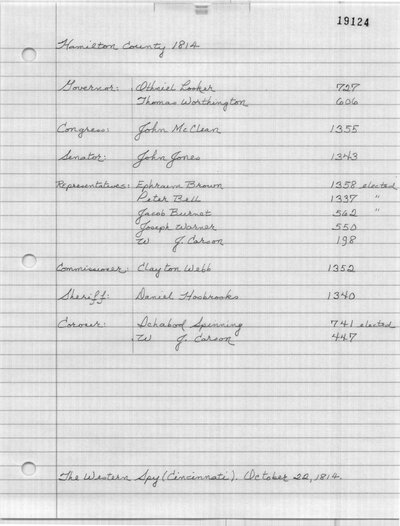 19124
Hamilton County 1814
Governor: Othniel Looker 727
Thomas Worthington 606
Congress: John McClean 1355
Senator: John Jones 1343
Representatives: Ephraim Brown 1358 elected
Peter Bell 1337 "
Jacob Burnet 562 "
Joseph Warner 550
W J. Carson 198
Commissioner: Clayton Webb 1352
Sheriff: Daniel Hosbrooks 1340
Coroner: Ichabod Spinning 741 elected
W J. Carson 447
The Western Spy (Cincinnati). October 22, 1814.